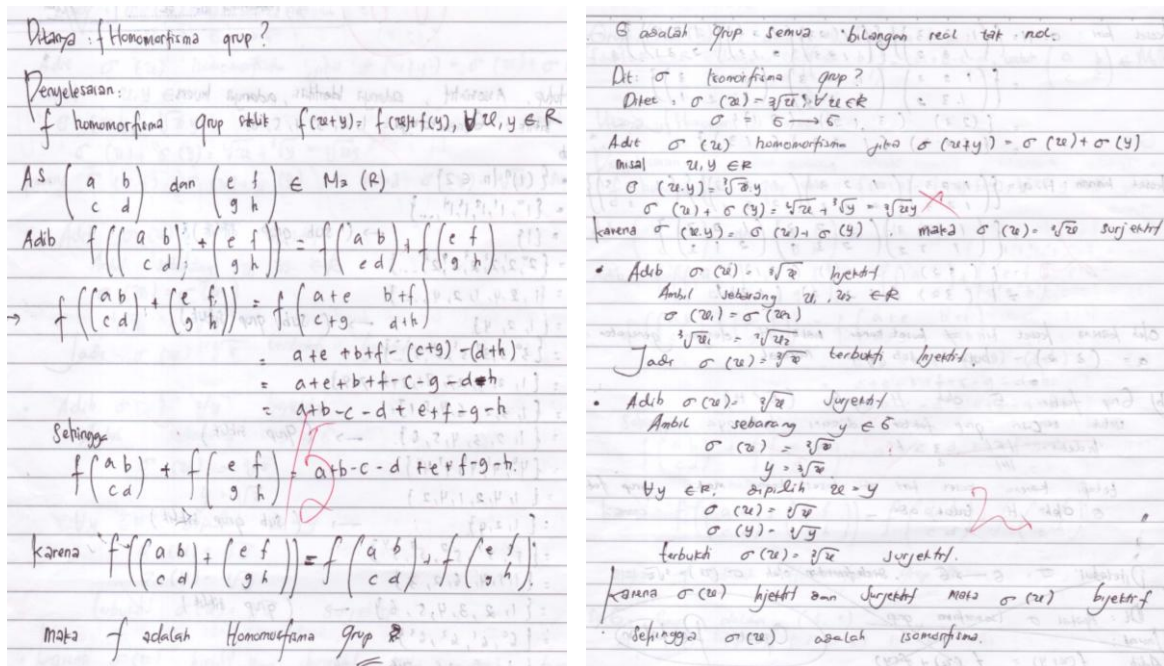 Ditanya : f Homomorfisma grup?
Penyelesaian:
f homomorfisma grup shb f(x+y) = f(x)+f(y), ∀ x, y ∈ R
AS (a b / c d) dan (e f / g h) ∈ M₂ (R)
Adib f((a b / c d) + (e f / g h)) = f(a b / c d) + f(e f / g h)
→ f((a b / c d) + (e f / g h)) = f(a+e b+f / c+g d+h)
= a+e +b+f - (c+g) - (d+h)
= a+e+b+f-c-g-d-h
= a+b-c-d+e+f-g-h
Sehingga
f(a b / c d) + f(e f / g h) = a+b-c-d+e+f-g-h.
15
2
Karena f((a b / c d) + (e f / g h)) = f(a b / c d) + f(e f / g h).
maka f adalah Homomorfisma grup
G adalah grup semua bilangan real tak nol.
Dit: σ isomorfisma grup?
Diket: σ (x) = ∛x ∀ x ∈ R
σ : G → G
Adit σ (x) homomorfisma jika (σ (x+y)) = σ (x) + σ (y)
misal x, y ∈ R
σ (x.y) = ∛x.y
σ (x) + σ (y) = ∛x + ∛y = ∛xy
karena σ (x.y) = σ (x) + σ (y) . maka σ (x) = ∛x surjektif
• Adib σ (x) = ∛x Injektif
Ambil sebarang x₁, x₂ ∈ R
σ (x₁) = σ (x₂)
∛x₁ = ∛x₂
Jadi σ (x) = ∛x terbukti Injektif.
• Adib σ (x) = ∛x Surjektif
Ambil sebarang y ∈ G
σ (x) = ∛x
y = ∛x
∀y ∈ R, dipilih x = y
σ (x) = ∛x
σ (y) = ∛y
2
terbukti σ (x) = ∛x surjektif.
Karena σ (x) Injektif dan Surjektif maka σ (x) bijektif
Sehingga σ (x) adalah isomorfisma.